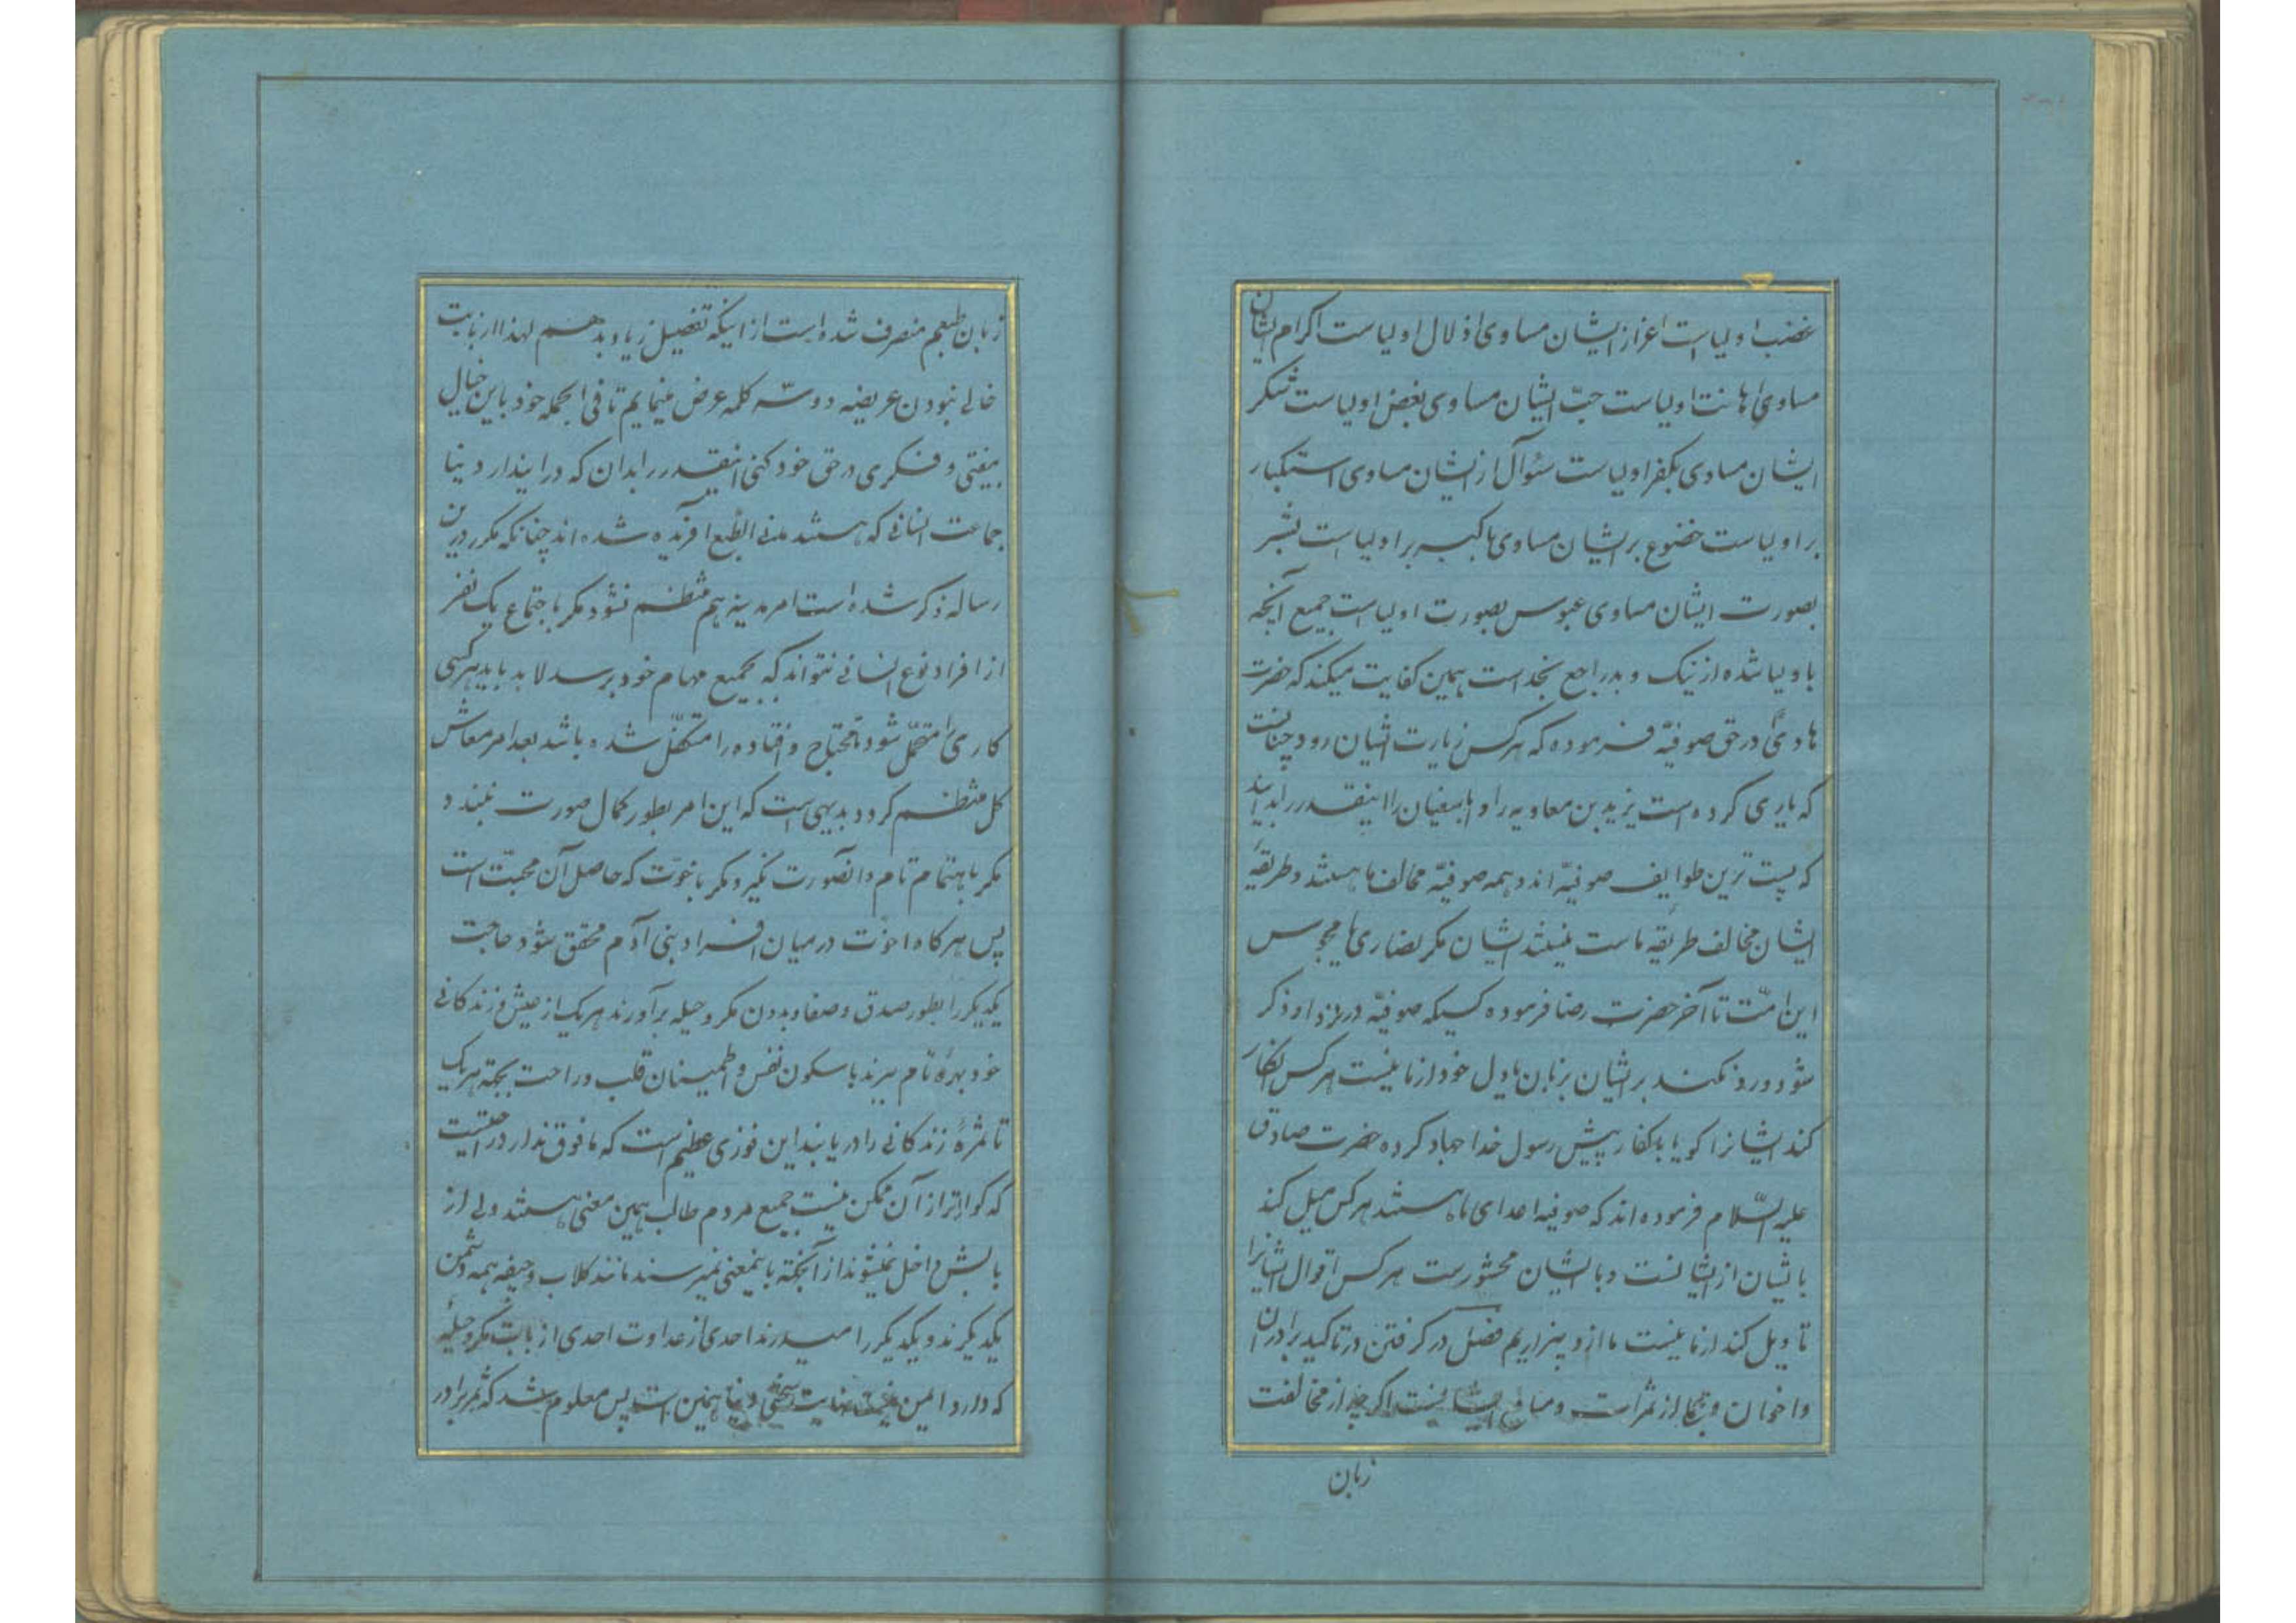 غضب اولیاست اعزاز ایشان مساوی اذلال اولیاست اکرام ایشان
مساوی اهانت اولیاست حبّ ایشان مساوی بغض اولیاست شکر
ایشان مساوی بکفر اولیاست سئوال از ایشان مساوی استکبار
بر اولیاست خضوع بر ایشان مساوی با کبر بر اولیاست بشر
بصورت ایشان مساوی عبوس بصورت اولیاست جمیع آنچه
باولیا شده از نیک و بد راجع بخداست همین کفایت میکند که حضرت
هادیؑ در حق صوفیّه فرموده که هر کس زیارت ایشان رود چنانست
که یاری کرده است یزید بن معاویه را و اباسفیان را اینقدر را بدانید
که پست ترین طوایف صوفیّه اند و همه صوفیّه مخالف ما هستند و طریقهٔ
ایشان مخالف طریقه ماست نیستند ایشان مکر نصاری یا مجوس
این امّت تا آخر حضرت رضا فرموده کسیکه صوفیّه در نزد او ذکر
شود و رد نکند بر ایشان بزبان یا دل خود از ما نیست هر کس انکار
کند ایشانرا کویا با کفار پیش رسول خدا جهاد کرده حضرت صادق
علیه السّلام فرموده اند که صوفیه اعدای ما هستند هر کس میل کند
بایشان از ایشانست و با ایشان محشورست هر کس اقوال ایشانرا
تاویل کند از ما نیست ما از او بیزاریم فصل در کرفتن در تاکید برادران
واخوان و ثمراست و منافع ایشانست اکر چه از مخالفت
زبان
زبان طبعم منصرف شده است از اینکه تفصیل زیاد بدهم لهذا از بابت
خالی نبودن عریضه دو سه کلمه عرض مینمایم تا فی الجمله خود باین خیال
بیفتی و فکری در حق خود کنی اینقدر را بدان که در ایندار دنیا
جماعت انسانی که هستند مدنی الطّبع آفریده شده اند چنانکه مکرر درین
رساله ذکر شده است امر مدینه هم منتظم نشود مکر باجتماع یک نفر
از افراد نوع انسانی نتواند که بجمیع مهام خود برسد لابد باید هر کسی
کاری را متحمّل شود تا محتاج و افتاده را متکفّل شده باشد بعد امر معاش
کل منتظم کردد بدیهی است که این امر بطور کمال صورت نبندد
مکر باهتمام تام و آنصورت نکیرد مکر باخوّت که حاصل آن محبّت است
پس هر کاه اخوّت در میان افراد بنی آدم محقق شود حاجت
یکدیکر را بطور صدق و صفا و بدون مکر و حیله برآورند هر یک از عیش و زندکانی
خود بهرهٔ تام میبرند با سکون نفس و اطمینان قلب و راحت بجهة هر یک
تا ثمرهٔ زندکانی را دریابند این فوزی عظیم است که ما فوق ندارد در حقیقت
که کواراتر از آن ممکن نیست جمیع مردم طالب همین معنی هستند ولی از
بابش داخل نمیشوند از آنجهة باینمعنی نمیرسند مانند کلاب و جیفه همه دشمن
یکدیکرند و یکدیکر را میدرند احدی از عداوت احدی از بابت مکر و حیلهٔ
که دارد ایمن نیست نهایت سختی دنیا همین است پس معلوم شد که ثمر برادر